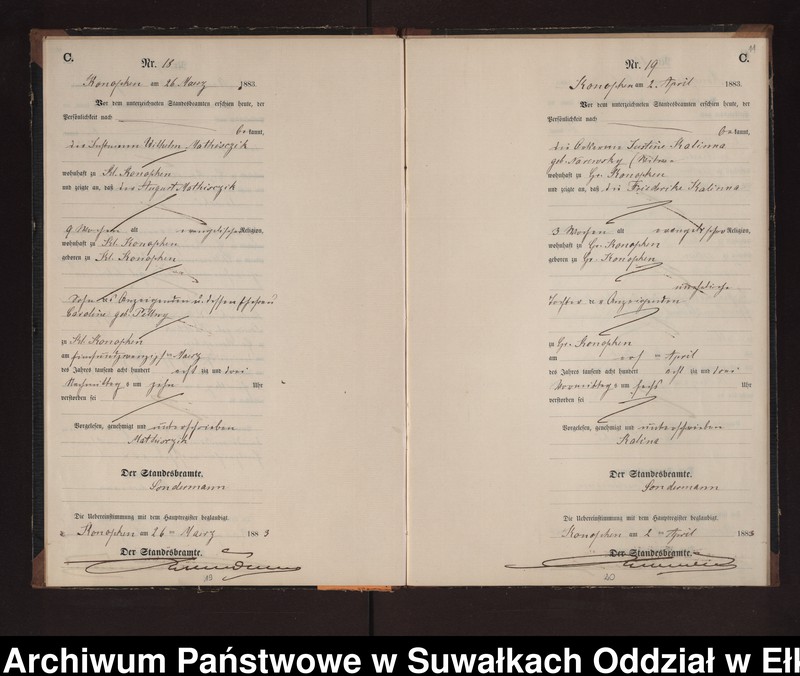 C.
Nr. 18
Konopken am 26 Maerz 1883.
Vor dem unterzeichneten Standesbeamten erschien heute, der
Persönlichkeit nach
be kannt,
Wilhelm Mathiorzik
wohnhaft zu Kl. Konopken
und zeigte an, daß der August Mathiorzik
9 Wochen alt evangelischer Religion,
wohnhaft zu Kl. Konopken
geboren zu Kl. Konopken
Sohn des Anzeigenden u. dessen Ehefrau
Caroline geb.
zu Kl. Konopken
am fünfundzwanzigsten Maerz
des Jahres tausend acht hundert acht zig und drei
Nachmittags um zehn Uhr
verstorben sei
Vorgelesen, genehmigt und unterschrieben
Mathiorzik
Der Standesbeamte.
Sondermann
Die Uebereinstimmung mit dem Hauptregister beglaubigt.
Konopken am 26 ten Maerz 1883
Der Standesbeamte.
Sondermann
19
C.
Nr. 19
Konopken am 2. April 1883.
Vor dem unterzeichneten Standesbeamten erschien heute, der
Persönlichkeit nach
be kannt,
die Justine Kalinna
geb.
wohnhaft zu Gr. Konopken
und zeigte an, daß die Friederike Kalinna
3 Wochen alt evangelischer Religion,
wohnhaft zu Gr. Konopken
geboren zu Gr. Konopken
uneheliche
Tochter der Anzeigenden
zu Gr. Konopken
am ersten April
des Jahres tausend acht hundert acht zig und drei
Vormittags um sechs Uhr
verstorben sei
Vorgelesen, genehmigt und unterschrieben
Kalina
Der Standesbeamte.
Sondermann
Die Uebereinstimmung mit dem Hauptregister beglaubigt.
Konopken am 2 ten April 1883
Der Standesbeamte.
Sondermann
20
Archiwum Państwowe w Suwałkach Oddział w Ełk